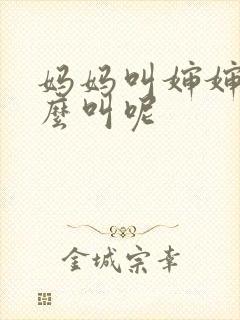 妈妈叫婶婶
麽叫呢
金城宗幸